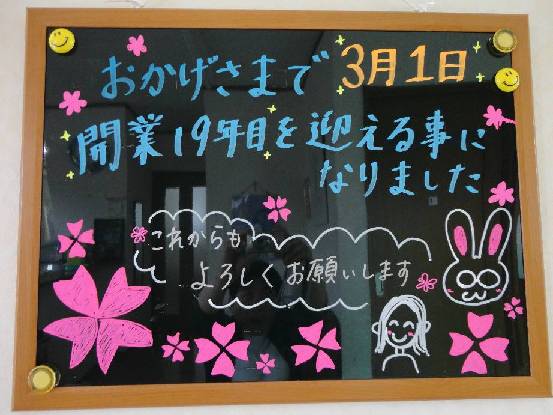 おかげさまで 3月1日
開業19年目を迎える事に
なりました
これからも
よろしくお願いします